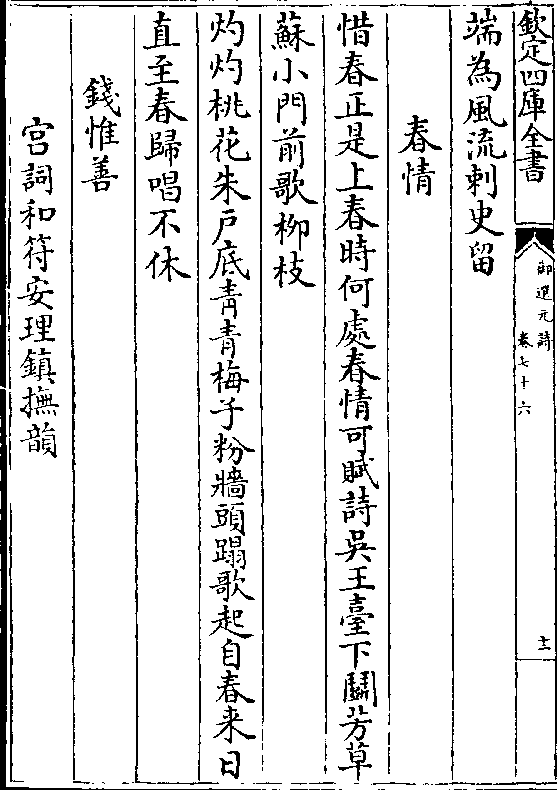 欽定四庫全書
御選元詩
卷七十六
十二
端為風流刺史留
春情
惜春正是上春時何處春情可賦詩吳王臺下鬬芳草
蘇小門前歌栁枝
灼灼桃花朱戸底青青梅子粉牆頭蹋歌起自春来日
直至春歸唱不休
錢惟善
宮詞和符安理鎮撫韻